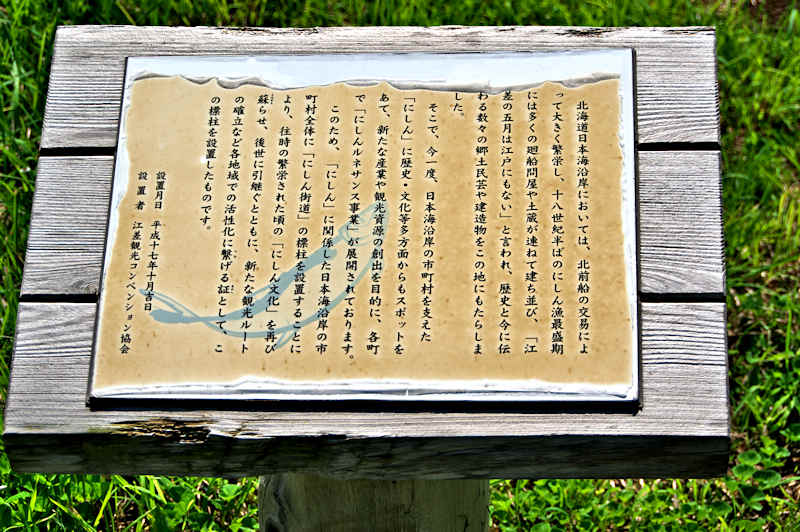 北海道日本海沿岸においては、北前船の交易によ
って大きく繁栄し、十八世紀半ばのにしん漁最盛期
には多くの廻船問屋や土蔵が連ねて建ち並び、「江
差の五月は江戸にもない」と言われ、歴史と今に伝
わる数々の郷土民芸や建造物をこの地にもたらしま
した。
そこで、今一度、日本海沿岸の市町村を支えた
「にしん」に歴史・文化等多方面からもスポットを
あて、新たな産業や観光資源の創出を目的に、各町
で「にしんルネサンス事業」が展開されております。
このため、「にしん」に関係した日本海沿岸の市
町村全体に「にしん街道」の標柱を設置することに
より、往時の繁栄された頃の「にしん文化」を再び
蘇らせ、後世に引継ぐとともに、新たな観光ルート
の確立など各地域での活性化に繋げる証として、こ
の標柱を設置したものです。
設置月日 平成十七年十月吉日
設置者 江差観光コンベンション協会